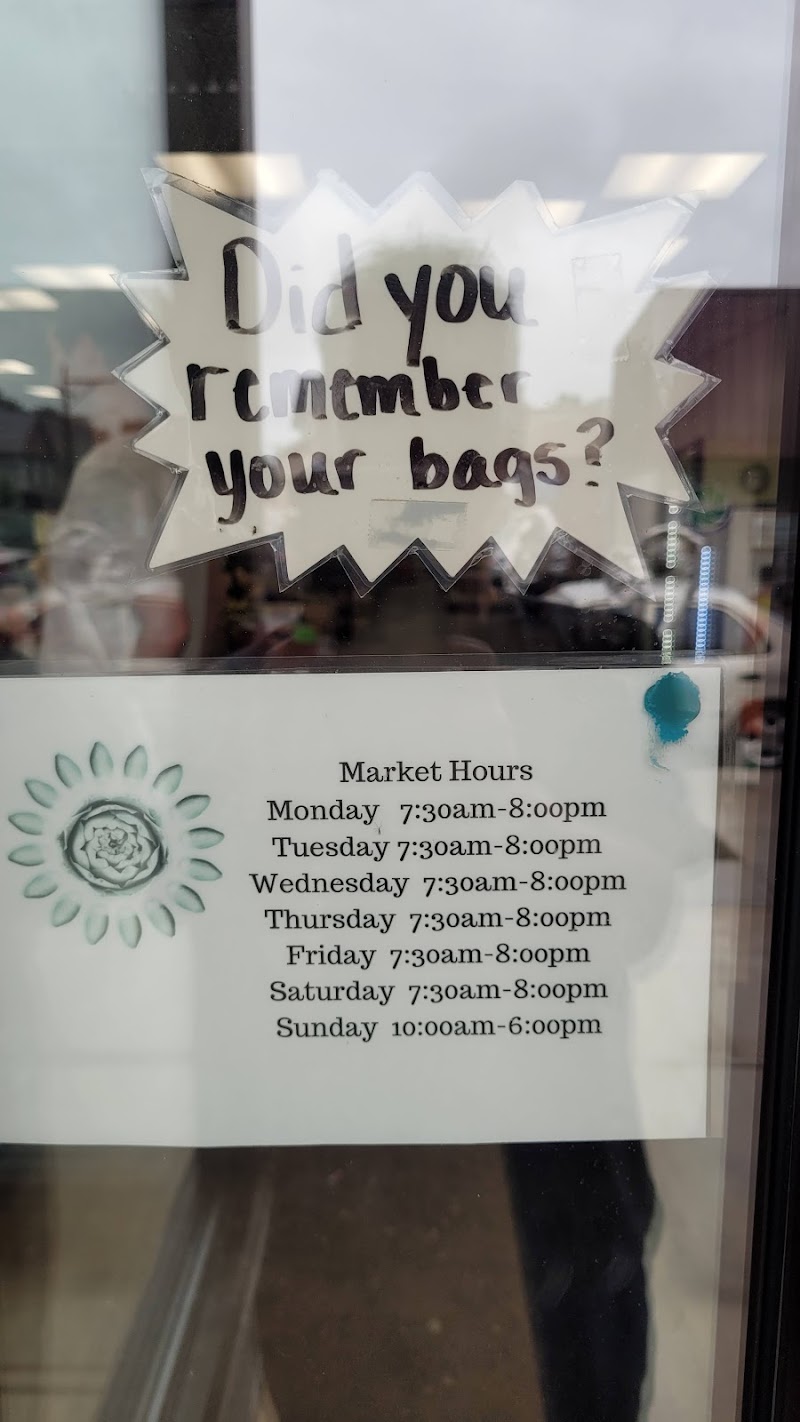 Did you
remember
your bags?
Market Hours
Monday 7:30am-8:00pm
Tuesday 7:30am-8:00pm
Wednesday 7:30am-8:00pm
Thursday 7:30am-8:00pm
Friday 7:30am-8:00pm
Saturday 7:30am-8:00pm
Sunday 10:00am-6:00pm